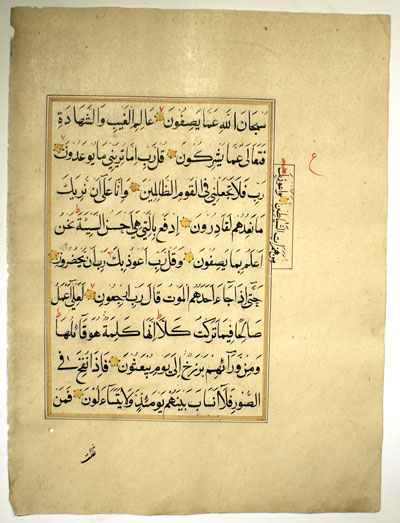 سُبْحَانَ اللهِ عَمَّا يَصِفُونَ عَالِمِ الْغَيْبِ وَالشَّهَادَةِ
فَتَعَالَى عَمَّا يُشْرِكُونَ قُلْ رَبِّ اِمَّا تُرِيَنِّي مَا يُوعَدُونَ
رَبِّ فَلَا تَجْعَلْنِي فِي الْقَوْمِ الظَّالِمِينَ وَاِنَّا عَلَى اَنْ نُرِيَكَ
مَا نَعِدُهُمْ لَقَادِرُونَ اِدْفَعْ بِالَّتِي هِيَ اَحْسَنُ السَّيِّئَةَ نَحْنُ
اَعْلَمُ بِمَا يَصِفُونَ وَقُلْ رَبِّ اَعُوذُ بِكَ رَبِّ اَنْ يَحْضُرُونِ
من همزات الشياطين واعوذ بك
ع
حَتَّى اِذَا جَاءَ اَحَدَهُمُ الْمَوْتُ قَالَ رَبِّ ارْجِعُونِ لَعَلِّي اَعْمَلُ
صَالِحًا فِيمَا تَرَكْتُ كَلَّا اِنَّهَا كَلِمَةٌ هُوَ قَائِلُهَا
وَمِنْ وَرَائِهِمْ بَرْزَخٌ اِلَى يَوْمِ يُبْعَثُونَ فَاِذَا نُفِخَ فِي
الصُّورِ فَلَا اَنْسَابَ بَيْنَهُمْ يَوْمَئِذٍ وَلَا يَتَسَاءَلُونَ فَمَنْ
ثقلت